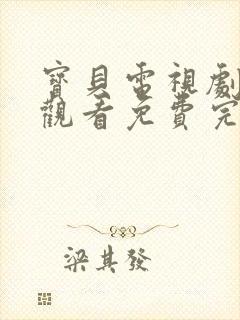 寶貝電視劇
觀看免費完
梁其發